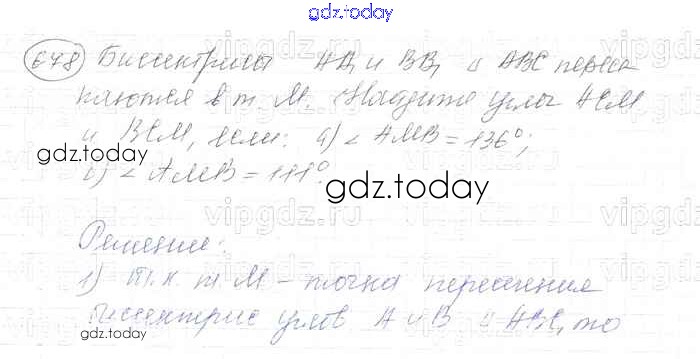 gdz.today
678 Биссектрисы AA₁ и BB₁ △ ABC пересе
каются в т. M. Найдите углы ACM
и BCM, если: а) ∠ AMB = 136°;
gdz.today
б) ∠ AMB = 111°.
gdz.today
Решение:
1) Т.к. т. M – точка пересечения
биссектрис углов A и B △ ABC, то
gdz.today